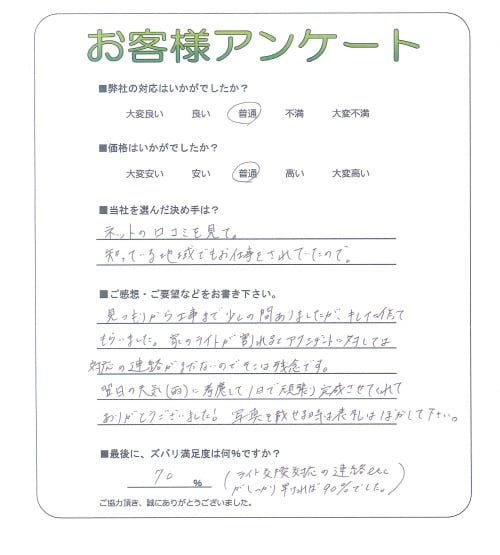 お客様アンケート
■弊社の対応はいかがでしたか？
大変良い 良い 普通 不満 大変不満
■価格はいかがでしたか？
大変安い 安い 普通 高い 大変高い
■当社を選んだ決め手は？
ネットの口コミを見て。
知っている地域でもお仕事をされていたので。
■ご感想・ご要望などをお書き下さい。
見つもりから工事まで少しの間ありましたが、キレイに仕て
もらいました。家のライトが割れるとアクシデントに対しては
対応の連絡がまだないのでそこは残念です。
翌日の天気(雨)に考慮して1日で頑張り完成させてくれて
ありがとうございました! 写真を載せる時は表札はぼかして下さい。
■最後に、ズバリ満足度は何％ですか？
70 ％ (ライト交換対応の連絡etc
がしっかり早ければ90%でした。)
ご協力頂き、誠にありがとうございました。